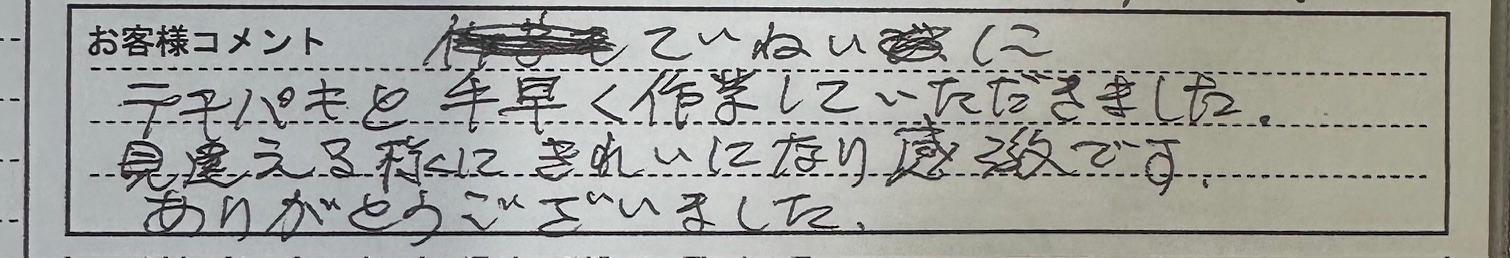 お客様コメント ていねいに
テキパキと手早く作業していただきました。
見違える様に きれいになり感激です。
ありがとうございました。